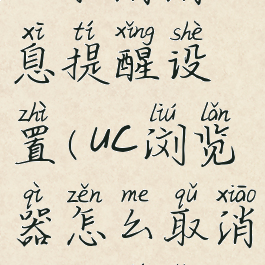 xī tí xǐng shè
息提醒设
zhì liú lǎn
置(UC浏览
qì zěn me qǔ xiāo
器怎么取消